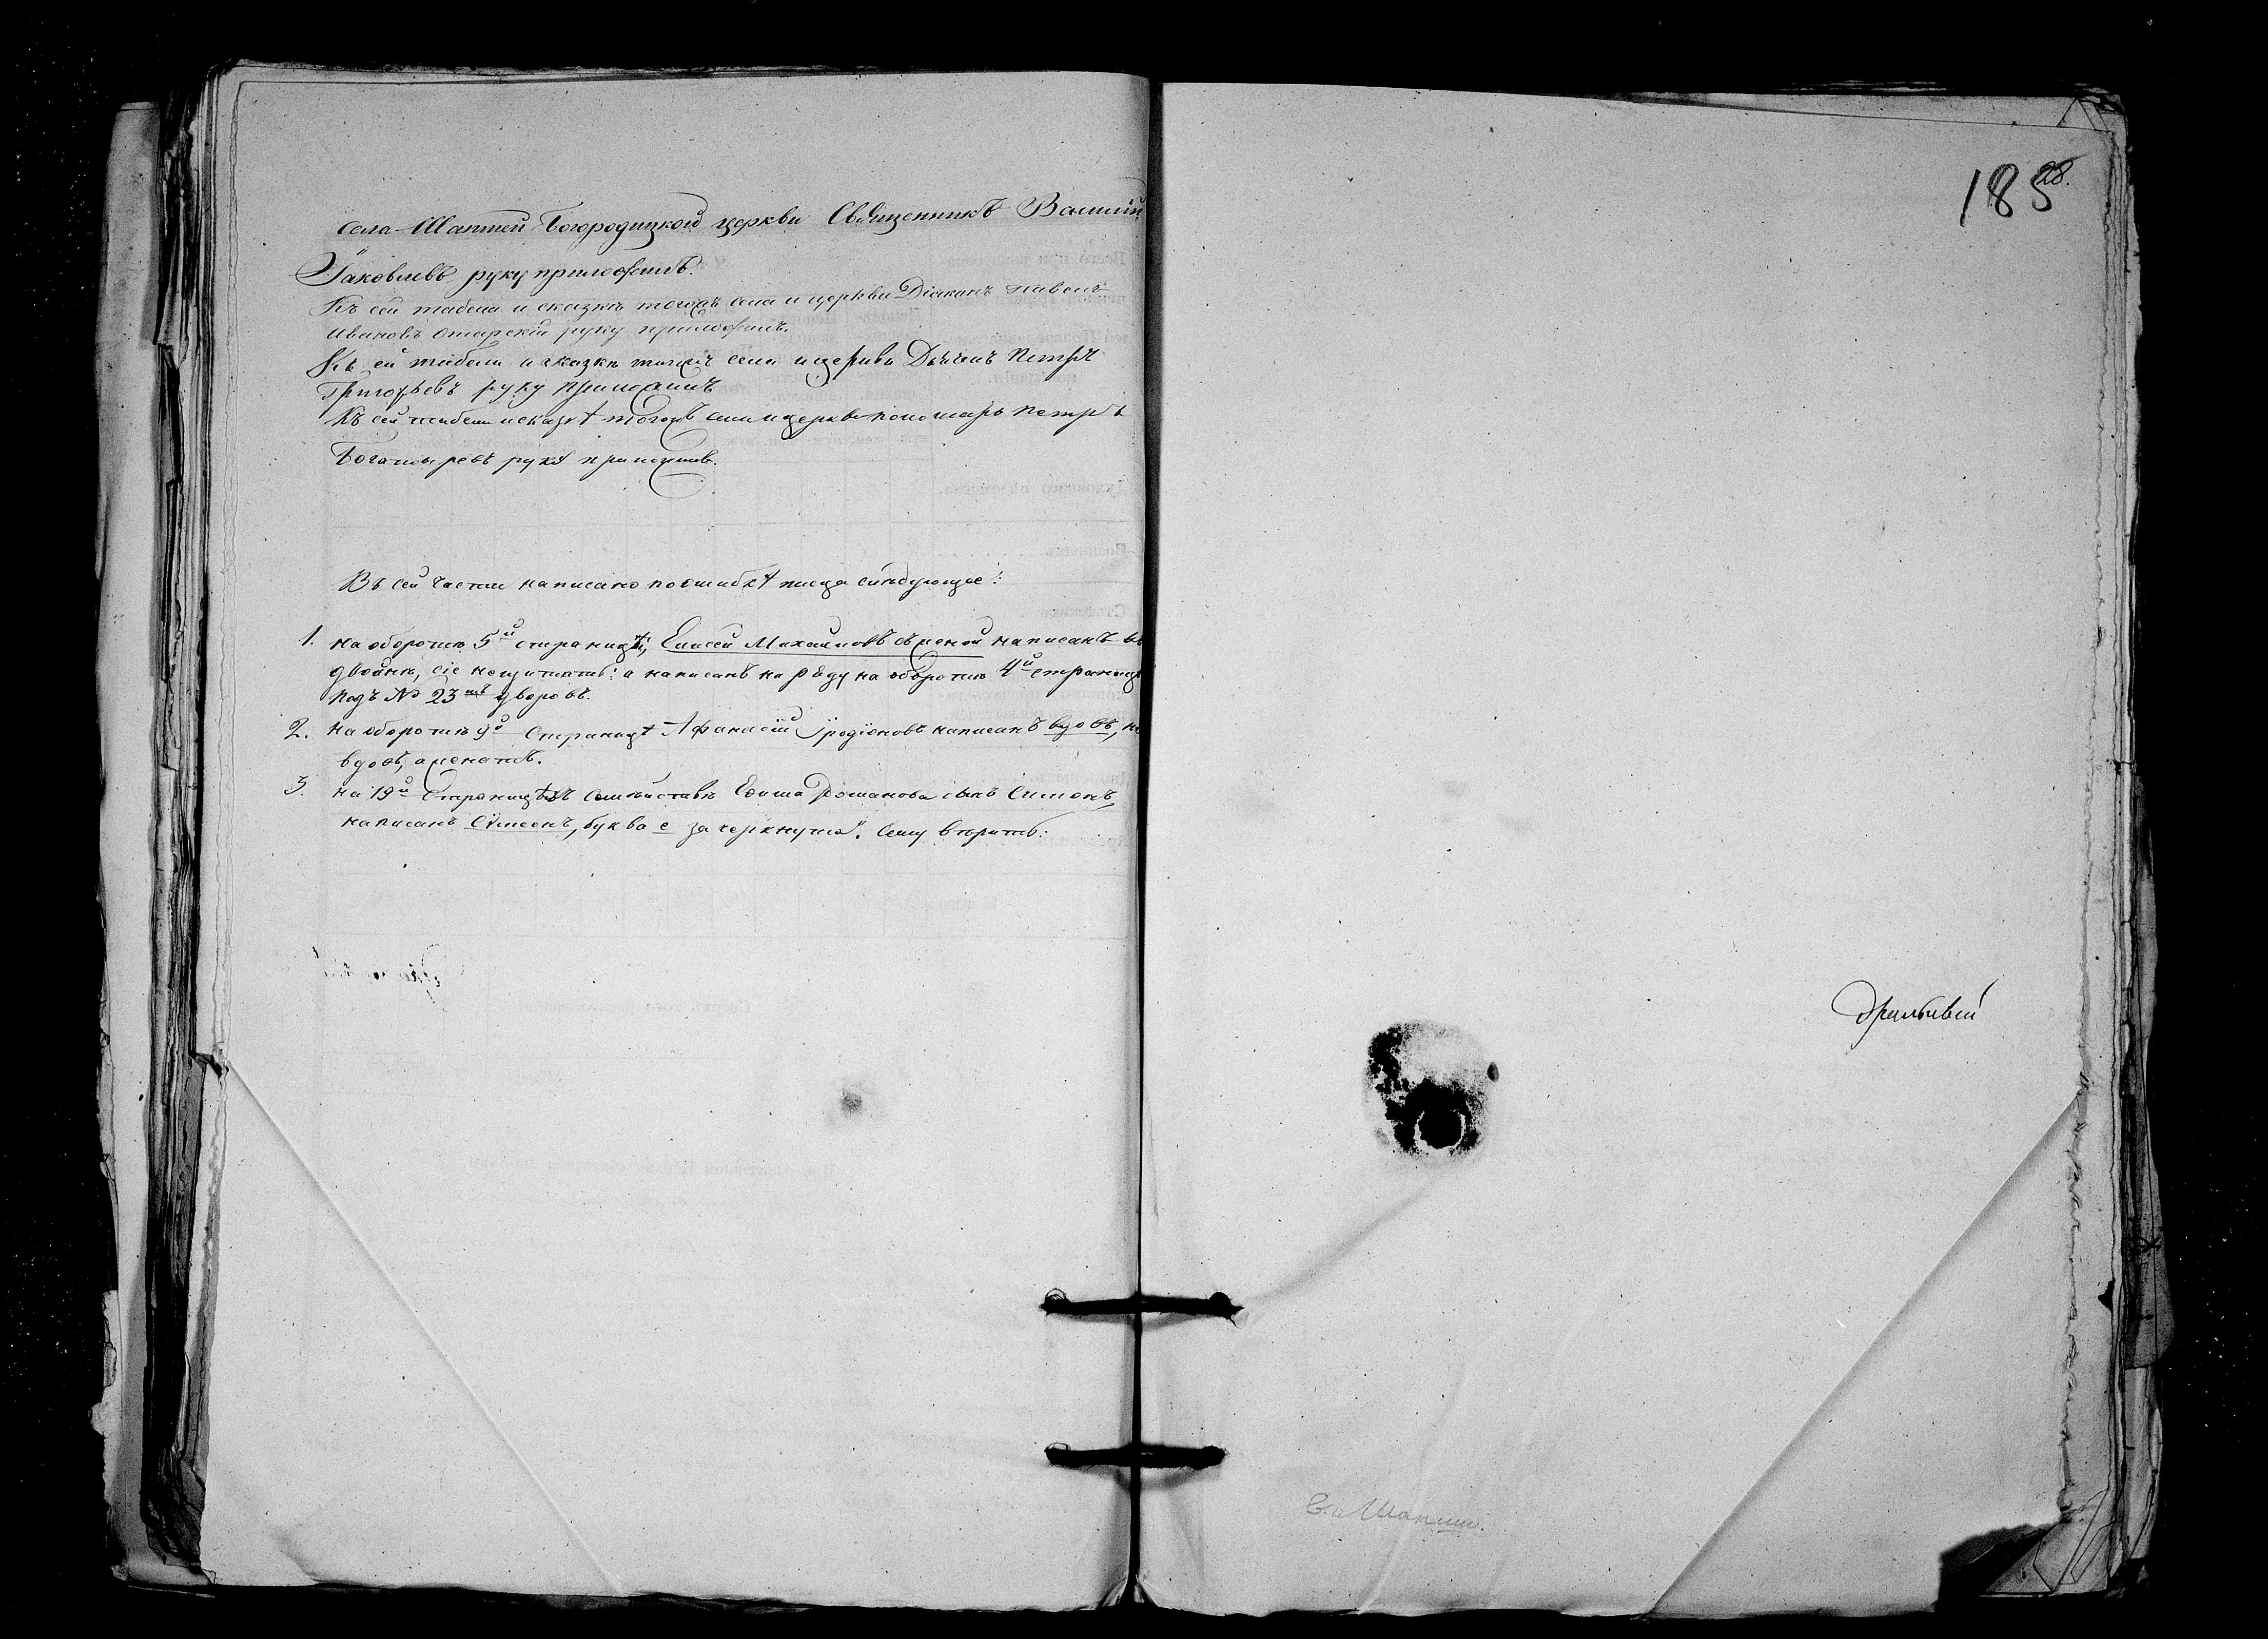 села Шаптей Богородицкой церкви Священникъ Василій
Іаковлевъ руку приложилъ.
Къ сей табели и сказкѣ тогожъ села и церкви Діаконъ Павелъ
Ивановъ руку приложилъ.
Къ сей табели и сказкѣ тогожъ села и церкви Дьячекъ Петръ
Григорьевъ руку приложилъ
Къ сей табели и сказкѣ тогожъ села и церкви пономарь Петръ
Богатыревъ руку приложилъ.
Въ сей части написано по ошибкѣ писца слѣдующее:
1. На оборотѣ 5й страницы, Елисей Михайловъ съ женой написанъ въ
двойнѣ, сіе не щитать: а написанъ на ряду на оборотѣ 4й страницы
подъ № 23мъ дворовъ.
2. На оборотѣ 9й страницѣ Афанасій Иродіоновъ написанъ вдовъ, не
вдовъ, а женатъ.
3. На 19й страницѣ въ семействѣ Романова сынъ Симонъ,
написанъ Сѵмеонъ, буква е зачеркнута. Сему вѣрить.
185
28.